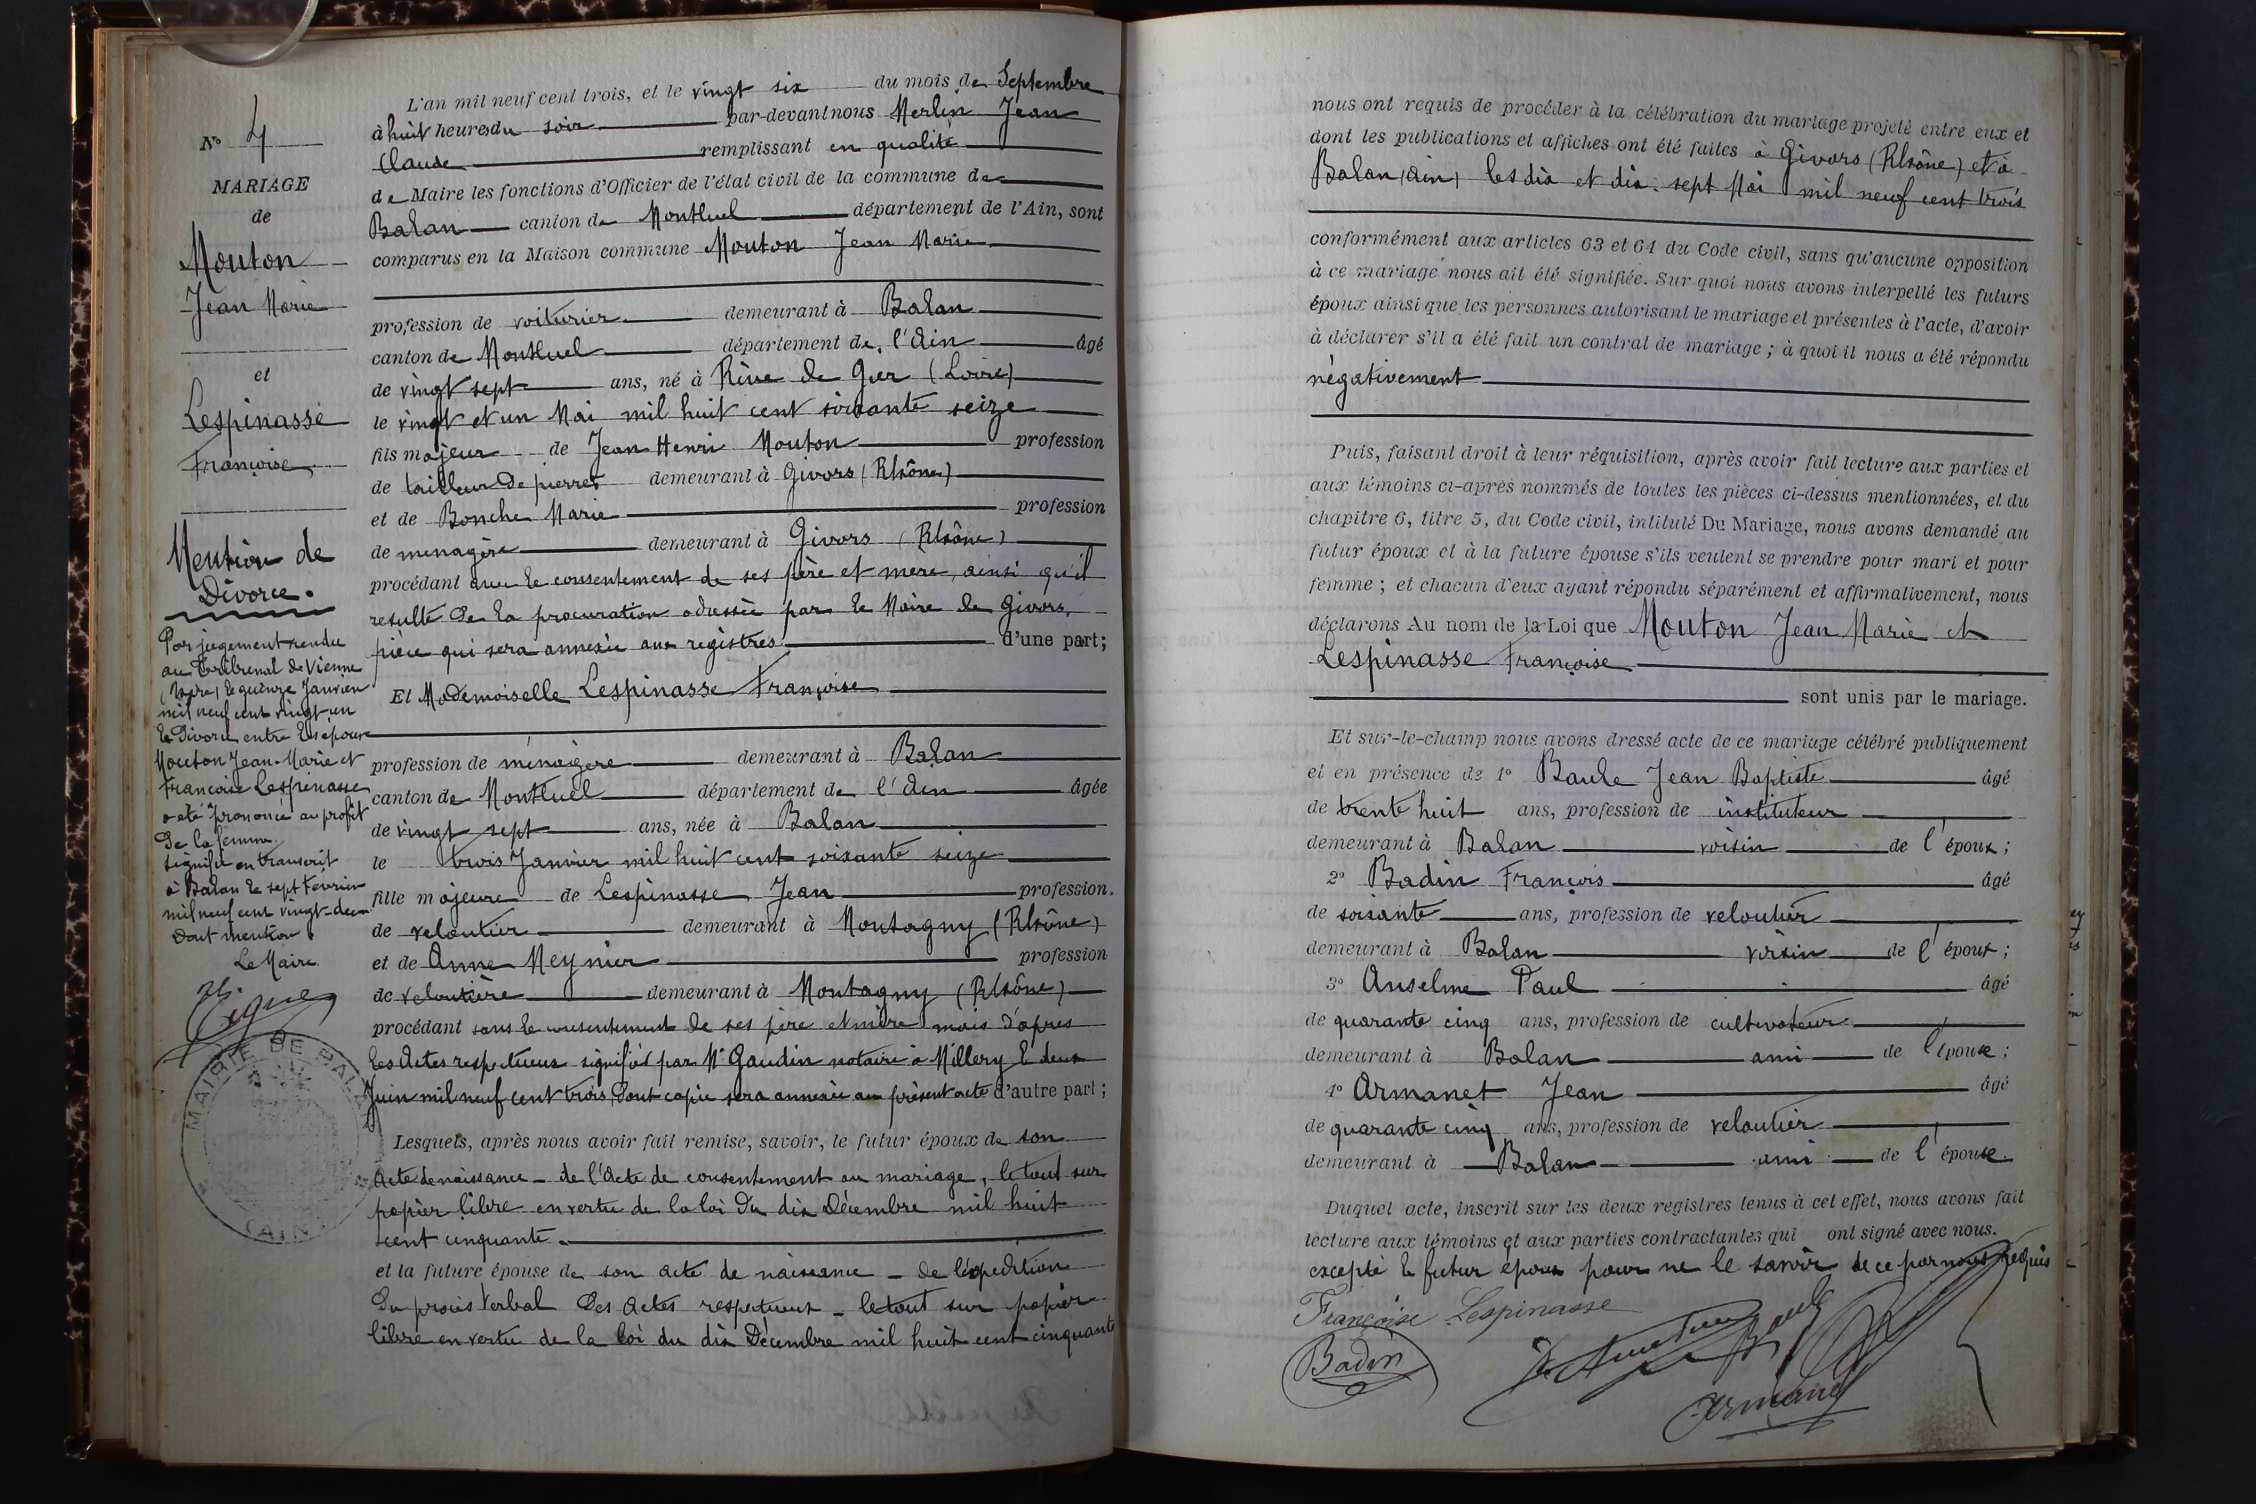 N° 4
MARIAGE
de
Mouton
Jean Marie
et
Lespinasse
Françoise
Mention de
Divorce.
Par jugement rendu
au Tribunal de Vienne
(Isère) le quinze Janvier
mil neuf cent vingt-un
le Divorce entre les époux
Mouton Jean-Marie et
Francoise Lespinasse
a été prononcé au profit
De la femme.
signifié en transcrit
à Balan le sept Février
mil neuf cent vingt-deux
Dont mention.
Le Maire
MAIRIE DE BALAN
(AIN)
L'an mil neuf cent trois, et le vingt six du mois de Septembre
à huit heures du soir par-devant nous Merlin Jean
Claude remplissant en qualité
de Maire les fonctions d'Officier de l'état civil de la commune de
Balan canton de Montluel département de l'Ain, sont
comparus en la Maison commune Mouton Jean Marie
profession de voiturier demeurant à Balan
canton de Montluel département de l'Ain âgé
de vingt sept ans, né à Rive de Gier (Loire)
le vingt et un Mai mil huit cent soixante seize
fils majeur de Jean Henri Mouton profession
de tailleur de pierres demeurant à Givors (Rhône)
et de Bonche Marie profession
de menagère demeurant à Givors (Rhône)
procédant avec le consentement de ses père et mère, ainsi qu'il
resulte de la procuration adressée par le Maire de Givors,
pièce qui sera annexée aux registres d'une part;
Et Mademoiselle Lespinasse Françoise
profession de ménagère demeurant à Balan
canton de Montluel département de l'Ain âgée
de vingt sept ans, née à Balan
le trois Janvier mil huit cent soixante seize
fille majeure de Lespinasse Jean profession
de veloutier demeurant à Montagny (Rhône)
et de Anne Meynier profession
de veloutière demeurant à Montagny (Rhône)
procédant sans le consentement de ses père et mère mais d'après
les Actes respectueux signifiés par Me Gaudin notaire à Millery le deux
Juin mil neuf cent trois, Dont copie sera annexée au présent acte d'autre part;
Lesquels, après nous avoir fait remise, savoir, le futur époux de son
acte de naissance – de l'acte de consentement au mariage, le tout sur
papier libre en vertu de la loi du dix Décembre mil huit
cent cinquante.
et la future épouse de son acte de naissance – de l'expédition
Du procès verbal Des Actes respectueux – le tout sur papier
libre en vertu de la loi du dix Décembre mil huit cent cinquante
nous ont requis de procéder à la célébration du mariage projeté entre eux et
dont les publications et affiches ont été faites à Givors (Rhône) et à
Balan (Ain) les dix et dix-sept Mai mil neuf cent trois
conformément aux articles 63 et 64 du Code civil, sans qu'aucune opposition
à ce mariage nous ait été signifiée. Sur quoi nous avons interpellé les futurs
époux ainsi que les personnes autorisant le mariage et présentes à l'acte, d'avoir
à déclarer s'il a été fait un contrat de mariage; à quoi il nous a été répondu
négativement
Puis, faisant droit à leur réquisition, après avoir fait lecture aux parties et
aux témoins ci-après nommés de toutes les pièces ci-dessus mentionnées, et du
chapitre 6, titre 5, du Code civil, intitulé Du Mariage, nous avons demandé au
futur époux et à la future épouse s'ils veulent se prendre pour mari et pour
femme; et chacun d'eux ayant répondu séparément et affirmativement, nous
déclarons Au nom de la Loi que Mouton Jean Marie et
Lespinasse Françoise
sont unis par le mariage.
Et sur-le-champ nous avons dressé acte de ce mariage célébré publiquement
et en présence de 1° Baule Jean Baptiste âgé
de trente huit ans, profession de instituteur
demeurant à Balan voisin de l'époux;
2° Badin François âgé
de soixante ans, profession de veloutier
demeurant à Balan voisin de l'époux;
3° Anselme Paul âgé
de quarante cinq ans, profession de cultivateur
demeurant à Balan ami de l'épouse;
4° Armanet Jean âgé
de quarante cinq ans, profession de veloutier
demeurant à Balan ami de l'épouse.
Duquel acte, inscrit sur les deux registres tenus à cet effet, nous avons fait
lecture aux témoins et aux parties contractantes qui ont signé avec nous.
excepté le futur époux pour ne le savoir de ce par nous requis
Françoise Lespinasse
Badin
Baule
Armanet